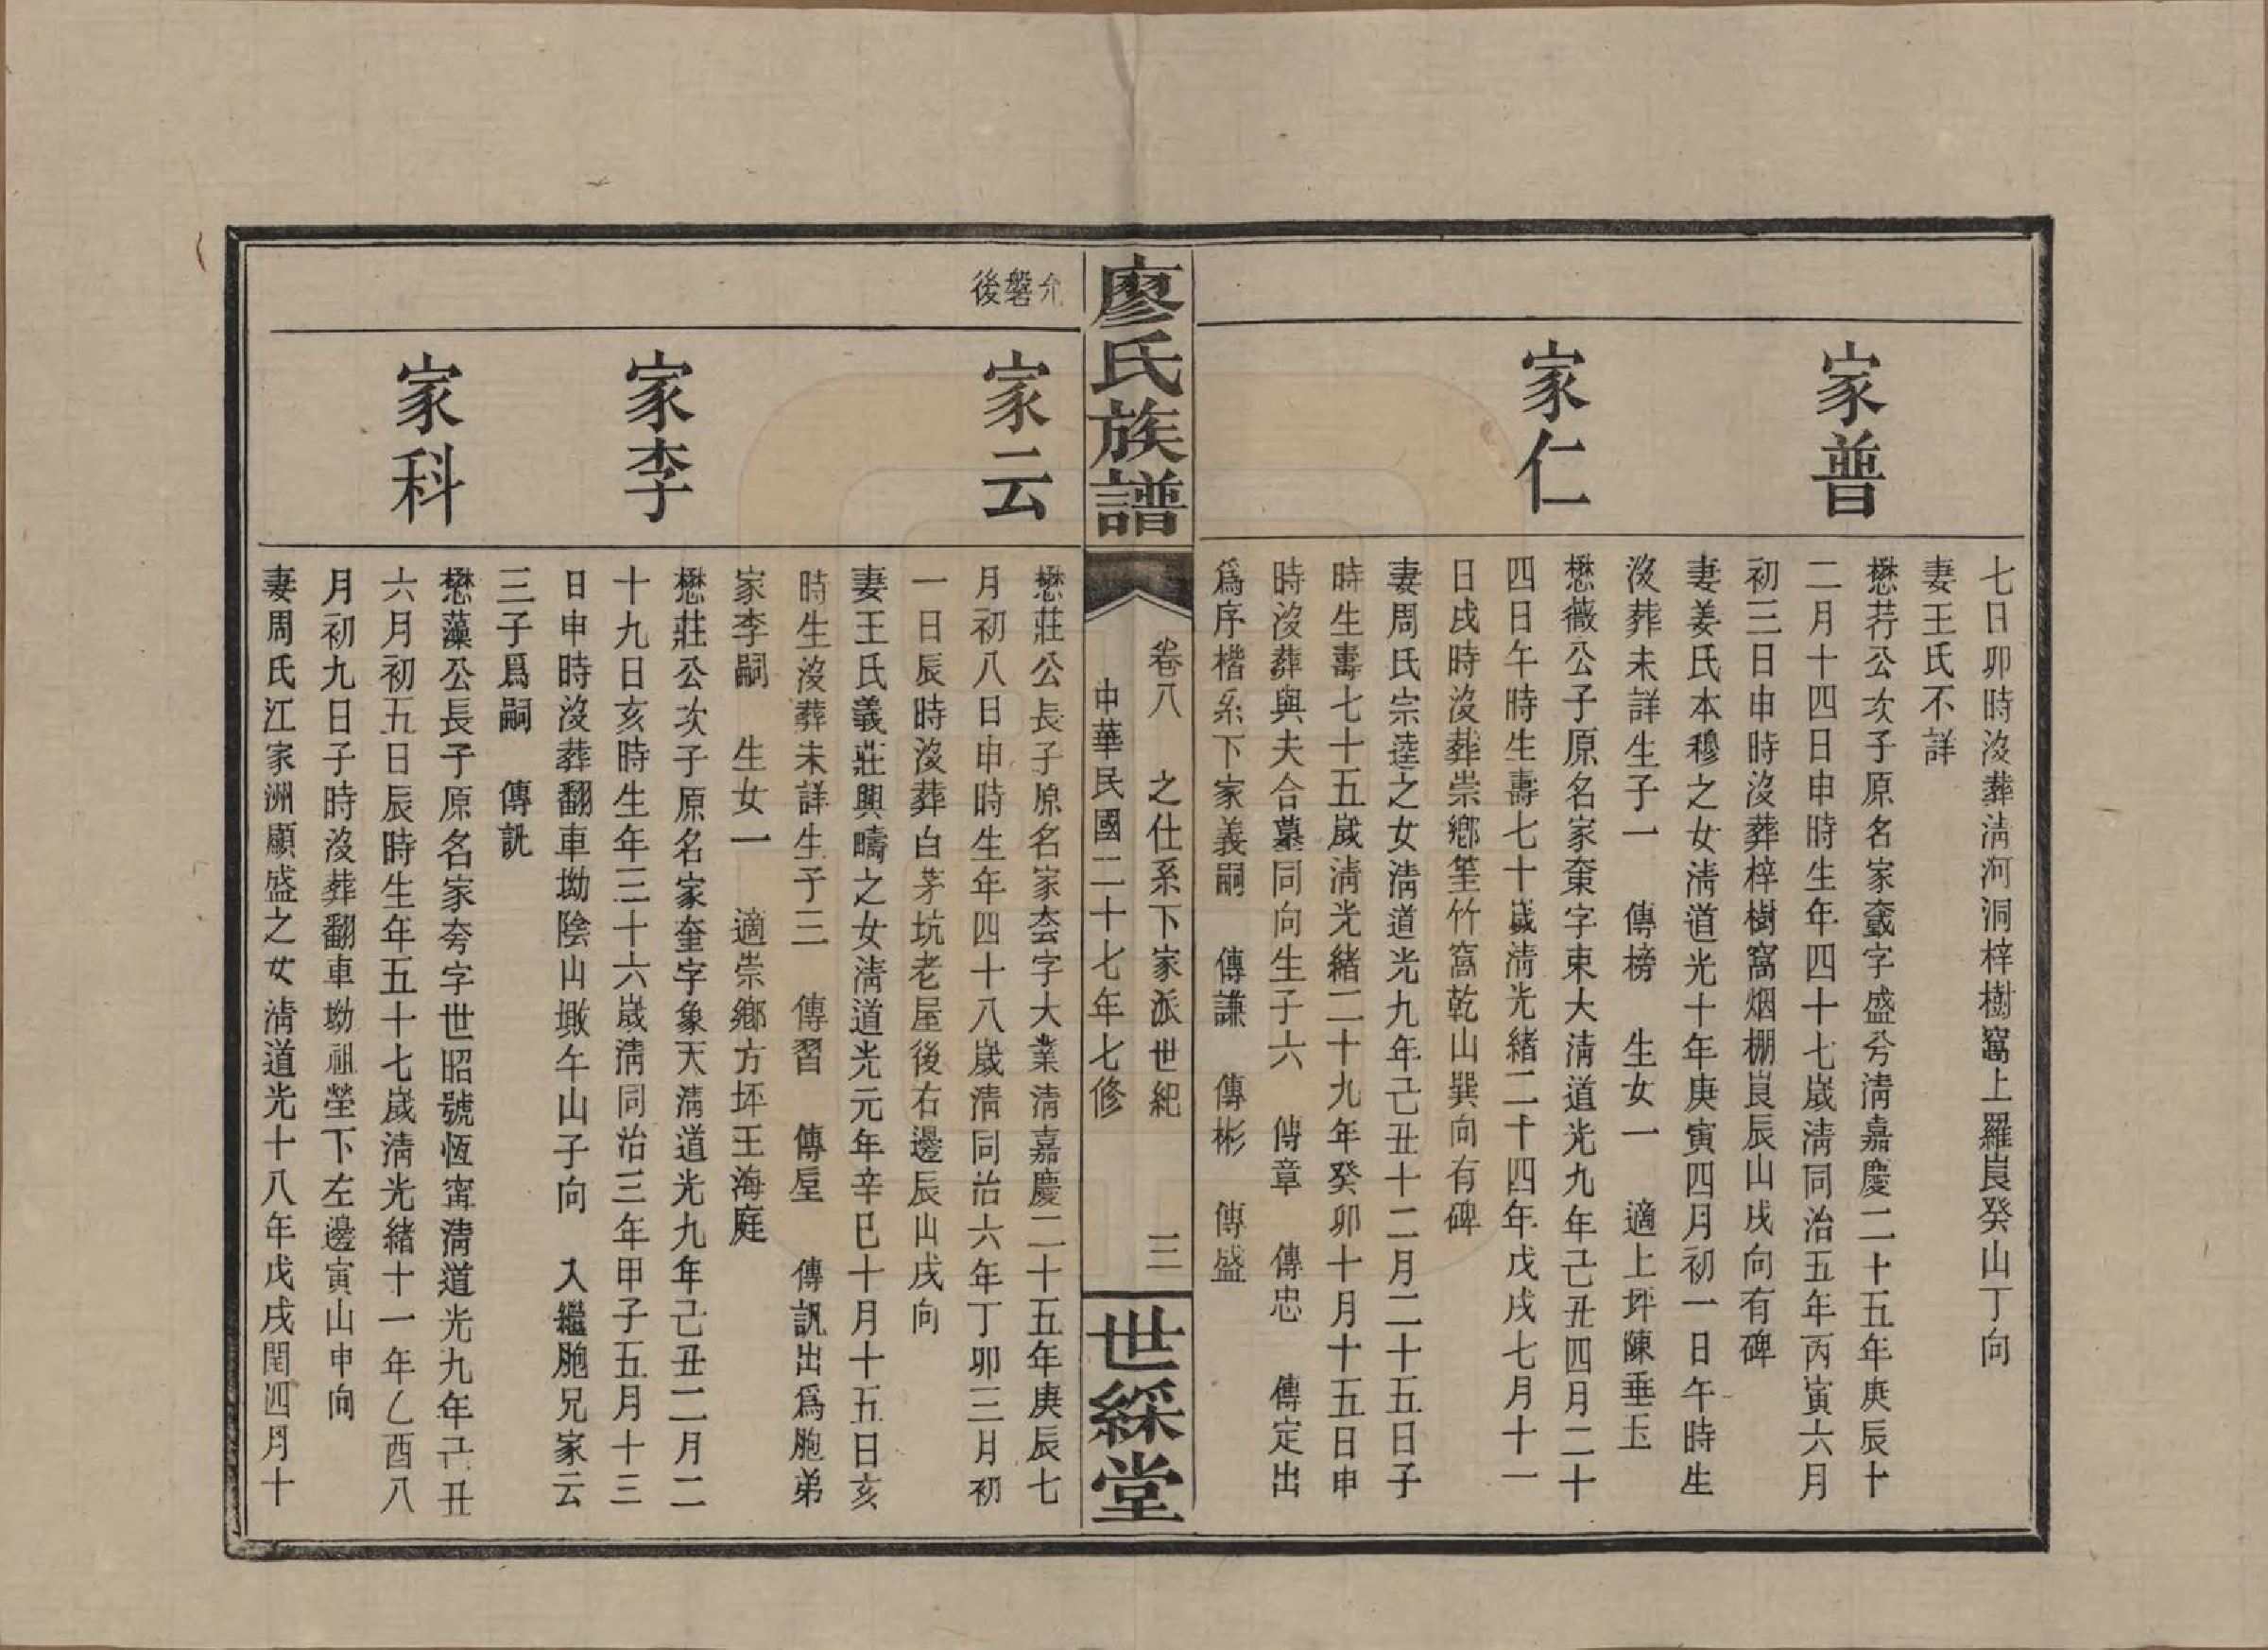 七日卯時沒葬淸河洞梓樹窩上羅㟍癸山丁向
妻王氏不詳
家普
懋荇公次子原名家㚖字盛兮淸嘉慶二十五年庚辰十
二月十四日申時生年四十七歲淸同治五年丙寅六月
初三日申時沒葬梓樹窩烟棚㟍辰山戌向有碑
妻姜氏本穆之女淸道光十年庚寅四月初一日午時生
沒葬未詳生子一　傳榜　生女一　適上坪陳垂玉
家仁
懋薇公子原名家㮏字東大淸道光九年己丑四月二十
四日午時生壽七十歲淸光緒二十四年戊戌七月十一
日戌時沒葬崇鄉筀竹窩乾山巽向有碑
妻周氏宗逵之女淸道光九年己丑十二月二十五日子
時生壽七十五歲淸光緒二十九年癸卯十月十五日申
時沒葬與夫合墓同向生子六　傳章　傳忠　傳定出
爲序楷系下家義嗣　傳謙　傳彬　傳盛
廖氏族譜
卷八　之仕系下家派世紀　三
中華民國二十七年七修
世綵堂
允磐後
家云
懋莊公長子原名家厺字大業淸嘉慶二十五年庚辰七
月初八日申時生年四十八歲淸同治六年丁卯三月初
一日辰時沒葬白茅坑老屋後右邊辰山戌向
妻王氏義莊興疇之女淸道光元年辛巳十月十五日亥
時生沒葬未詳生子三　傳習　傳垕　傳訊出爲胞弟
家李嗣　生女一　適崇鄉方坪王海庭
家李
懋莊公次子原名家奎字象天淸道光九年己丑二月二
十九日亥時生年三十六歲淸同治三年甲子五月十三
日申時沒葬翻車坳陰山墩午山子向　入繼胞兄家云
三子爲嗣　傳訊
家科
懋藻公長子原名家夸字世昭號恆甯淸道光九年己丑
六月初五日辰時生年五十七歲淸光緒十一年乙酉八
月初九日子時沒葬翻車坳祖塋下左邊寅山申向
妻周氏江家洲顯盛之女淸道光十八年戊戌閏四月十